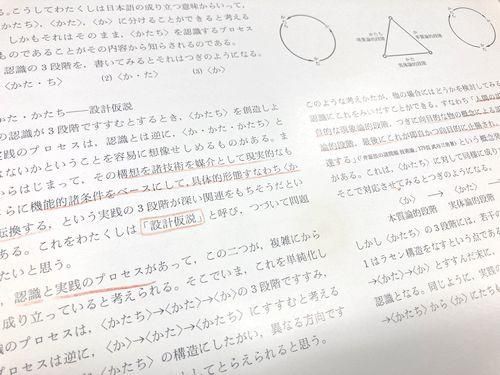 る。こうしてわたくしは日本語の成り立つ意味からいって、
かたち〉,〈かた〉,〈か〉に分けることができると考える
しかもそれはそのまま,〈かたち〉を認識するプロセス
ものであることがその内容から知らされるのである。
認識の3段階を,書いてみるとそれはつぎのようになる。
〈かた・ち〉 (2)〈か・た〉 (3)〈か〉
かた・かたち──設計仮説
の認識が3段階ですすむとするとき,〈かたち〉を創造しよ
実践のプロセスは,認識とは逆に,〈か・かた・かたち〉と
はないかということを容易に想像せしめるものがある。ま
からはじまって,その構想を諸技術を媒介として現実的なも
さらに機能的諸条件をベースにして,具体的形態すなわち〈か
転換する,という実践の3段階が深い関連をもちそうだとい
ある。これをわたくしは「設計仮説」と呼び,つづいて問題
たいと思う。
,認識と実践のプロセスがあって,この二つが,複雑にから
成り立っていると考えられる。そこでいま,これを単純化し
識のプロセスは,〈かたち〉→〈かた〉→〈か〉の3段階ですすみ,
プロセスは逆に,〈か〉→〈かた〉→〈かたち〉にすすむと考える
〈かたち〉の構造にしたがい,異なる方向です
としてとらえられると思う。
か
かた
かたち
かたち
現象論的段階
か
かた
実体論的段階
か
かた
このような考えかたが,他の場合にはどうかを検討してみ
認識にこれをみいだすことができる。すなわち「人間の
論的段階,最後にこれが
達する」
ある。これは,〈かたち〉に対して同様に成り
そこで対応させてみるとつぎのようになる。
〈か〉 → 〈かた〉
本質論的段階 実体論的段階
しかし〈かたち〉の3段階には,若干
1はラセン構造をなすという点であ
→〈かた〉→〈か〉とすすんだ果に,
認識となる。同じように,実践
→〈かたち〉から〈か〉にたち